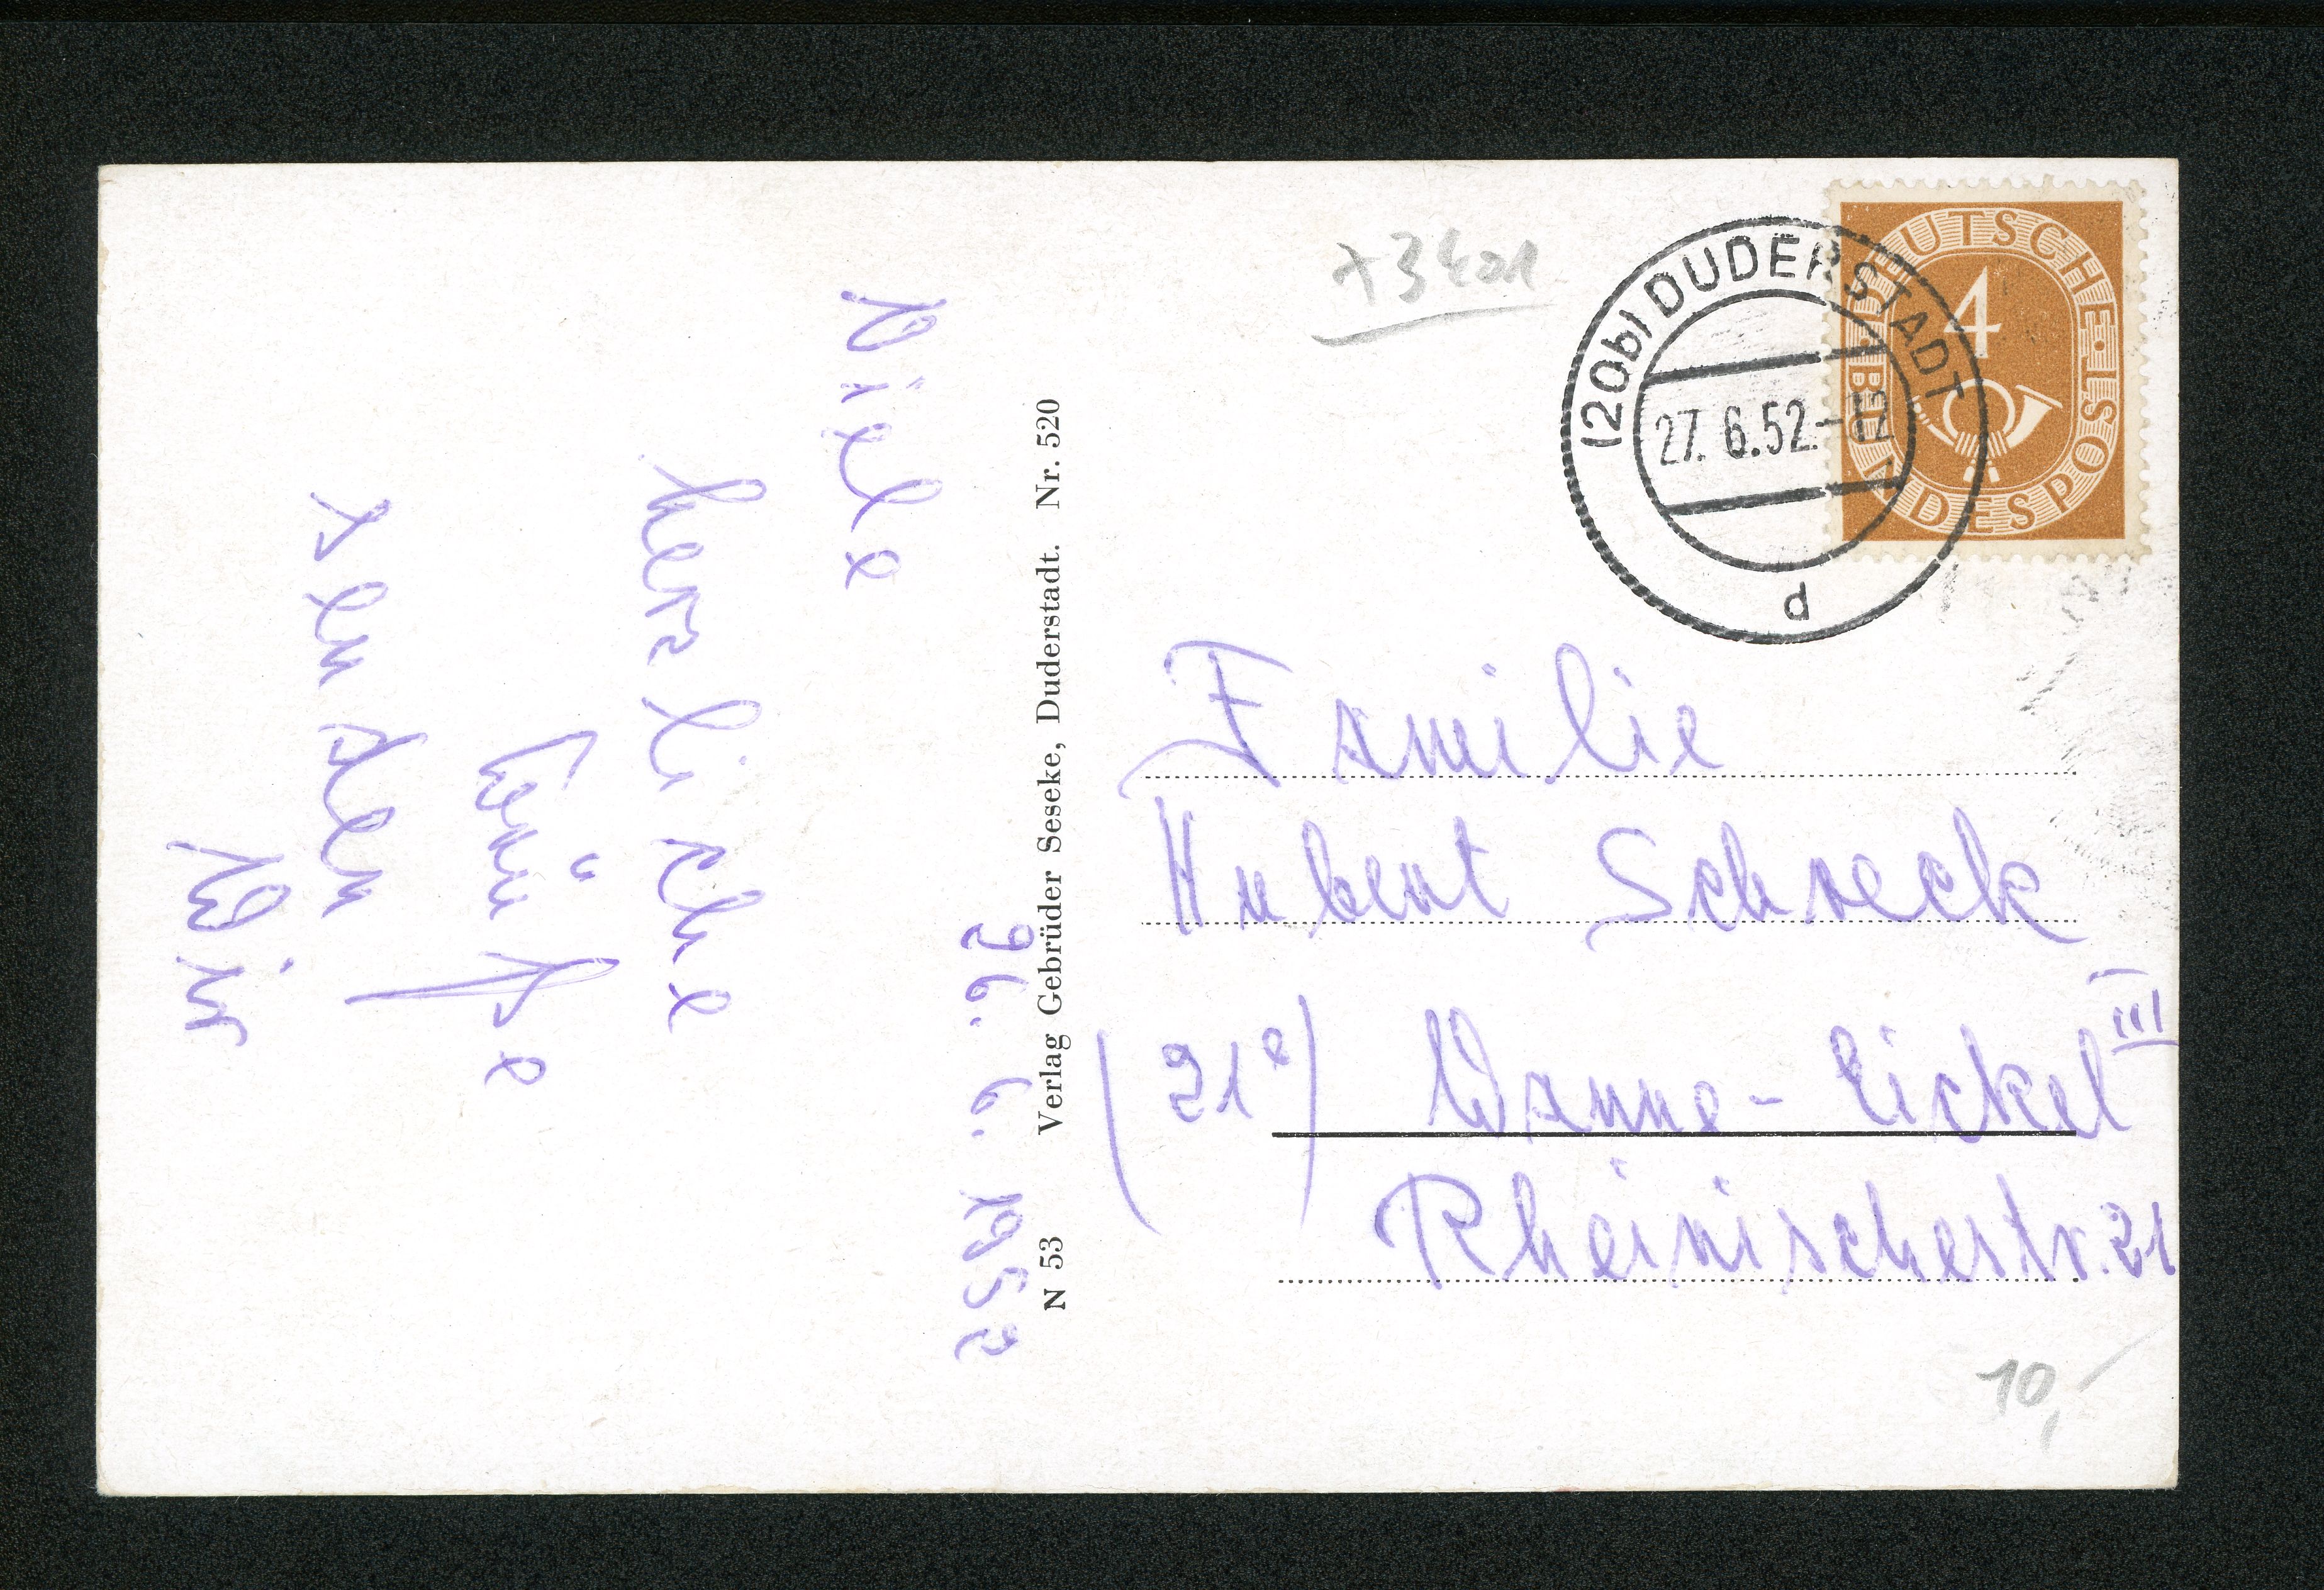 26. 6. 1952
Viele
herzliche
Grüße
senden
Wir
N 53 Verlag Gebrüder Seseke, Duderstadt. Nr. 520
DEUTSCHE BUNDESPOST
4
(20b) DUDERSTADT
27. 6.52.-12
d
Familie
Hubert Schreck
(21a) Wanne-Eickel III
Rheinischestr. 21
10,-